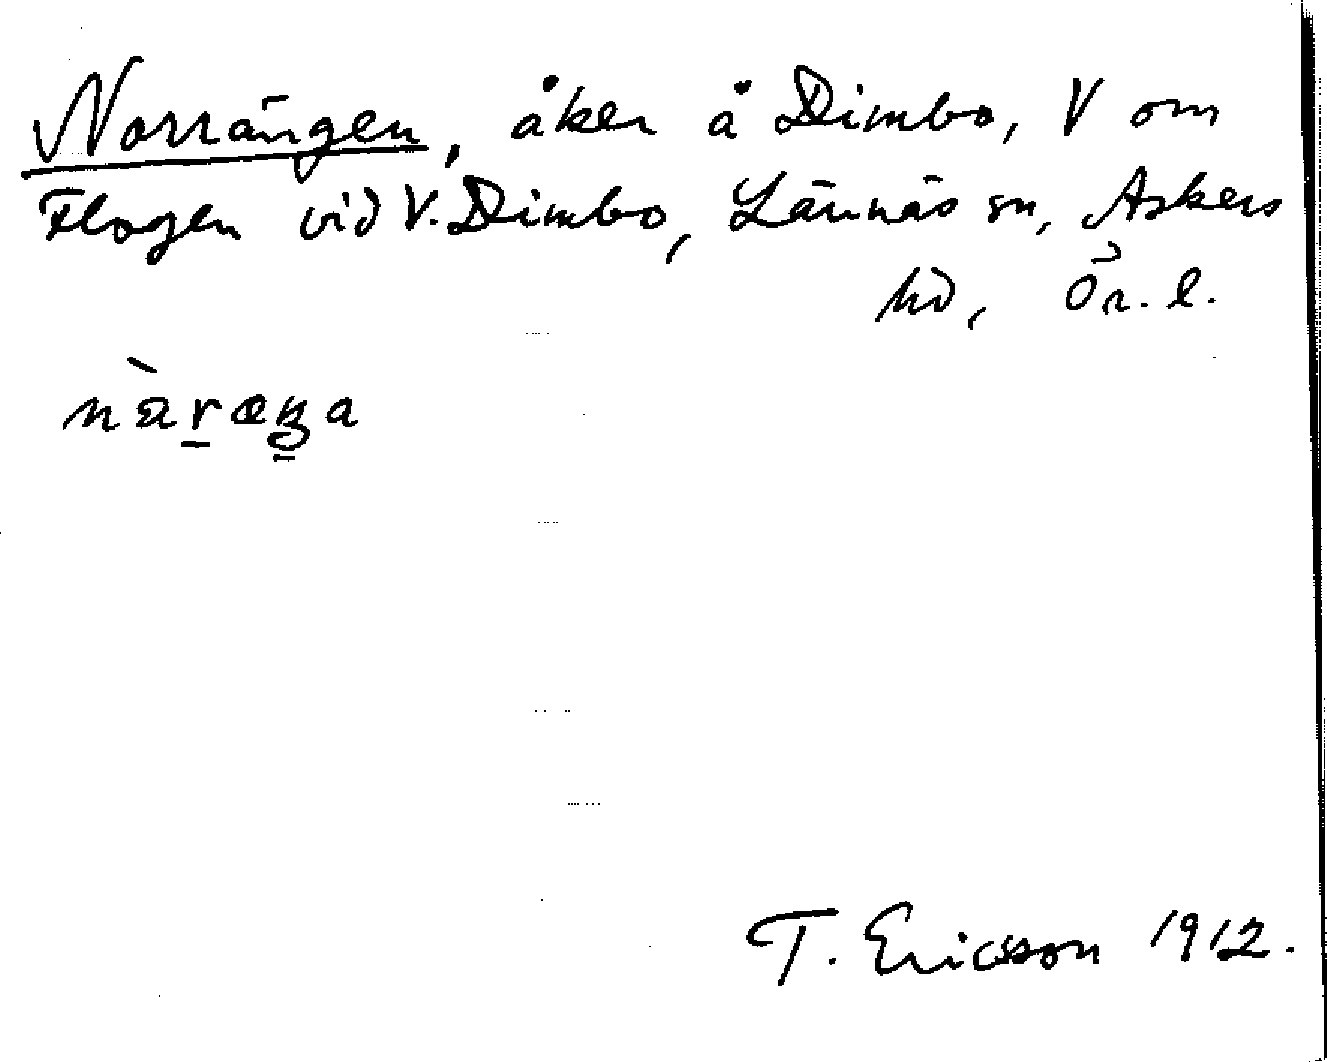 Norrängen, åker å Dimbo, V om
Flogen vid V. Dimbo, Lännäs sn, Askers
hd, Ör. l.
T. Ericson 1912.